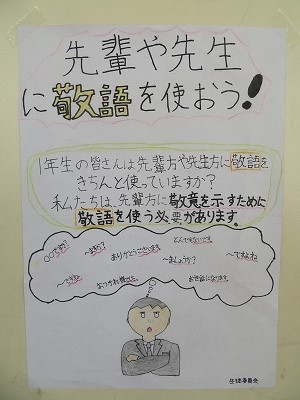 先輩や先生
に敬語を使おう!
1年生の皆さんは先輩方や先生方に敬語を
きちんと使っていますか?
私たちは、先輩方に敬意を示すために
敬語を使う必要があります。
とんでもないです
ありがとうございます
〜ましょうか?
〜ですよね
おつかれ様でした
お世話になります